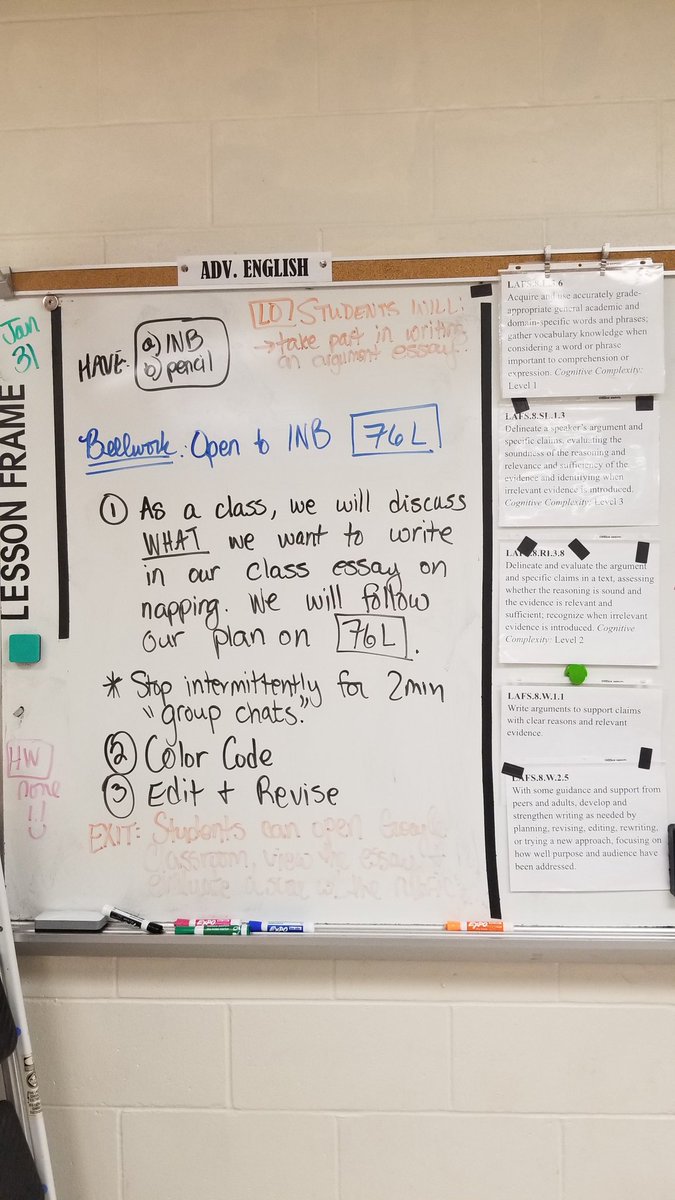 ADV. ENGLISH
Jan
31
LESSON FRAME
HW
none
!!
HAVE-
a) INB
b) pencil
LO STUDENTS WILL:
→ take part in writing
an argument essay.
Bellwork: Open to INB 76L
① As a class, we will discuss
WHAT we want to write
in our class essay on
napping. We will follow
our plan on 76L.
* Stop intermittently for 2min
"group chats."
② Color Code
③ Edit + Revise
EXIT: Students can open Google
Classroom, view the essay +
evaluate a score to the rubric.
EXPO
EXPO
EXPO
LAFS.8.L.3.6
Acquire and use accurately grade-
appropriate general academic and
domain-specific words and phrases;
gather vocabulary knowledge when
considering a word or phrase
important to comprehension or
expression. Cognitive Complexity:
Level 1
LAFS.8.SL.1.3
Delineate a speaker's argument and
specific claims, evaluating the
soundness of the reasoning and
relevance and sufficiency of the
evidence and identifying when
irrelevant evidence is introduced.
Cognitive Complexity: Level 3
LAFS.8.RI.3.8
Delineate and evaluate the argument
and specific claims in a text, assessing
whether the reasoning is sound and
the evidence is relevant and
sufficient; recognize when irrelevant
evidence is introduced. Cognitive
Complexity: Level 2
LAFS.8.W.1.1
Write arguments to support claims
with clear reasons and relevant
evidence.
LAFS.8.W.2.5
With some guidance and support from
peers and adults, develop and
strengthen writing as needed by
planning, revising, editing, rewriting,
or trying a new approach, focusing on
how well purpose and audience have
been addressed.